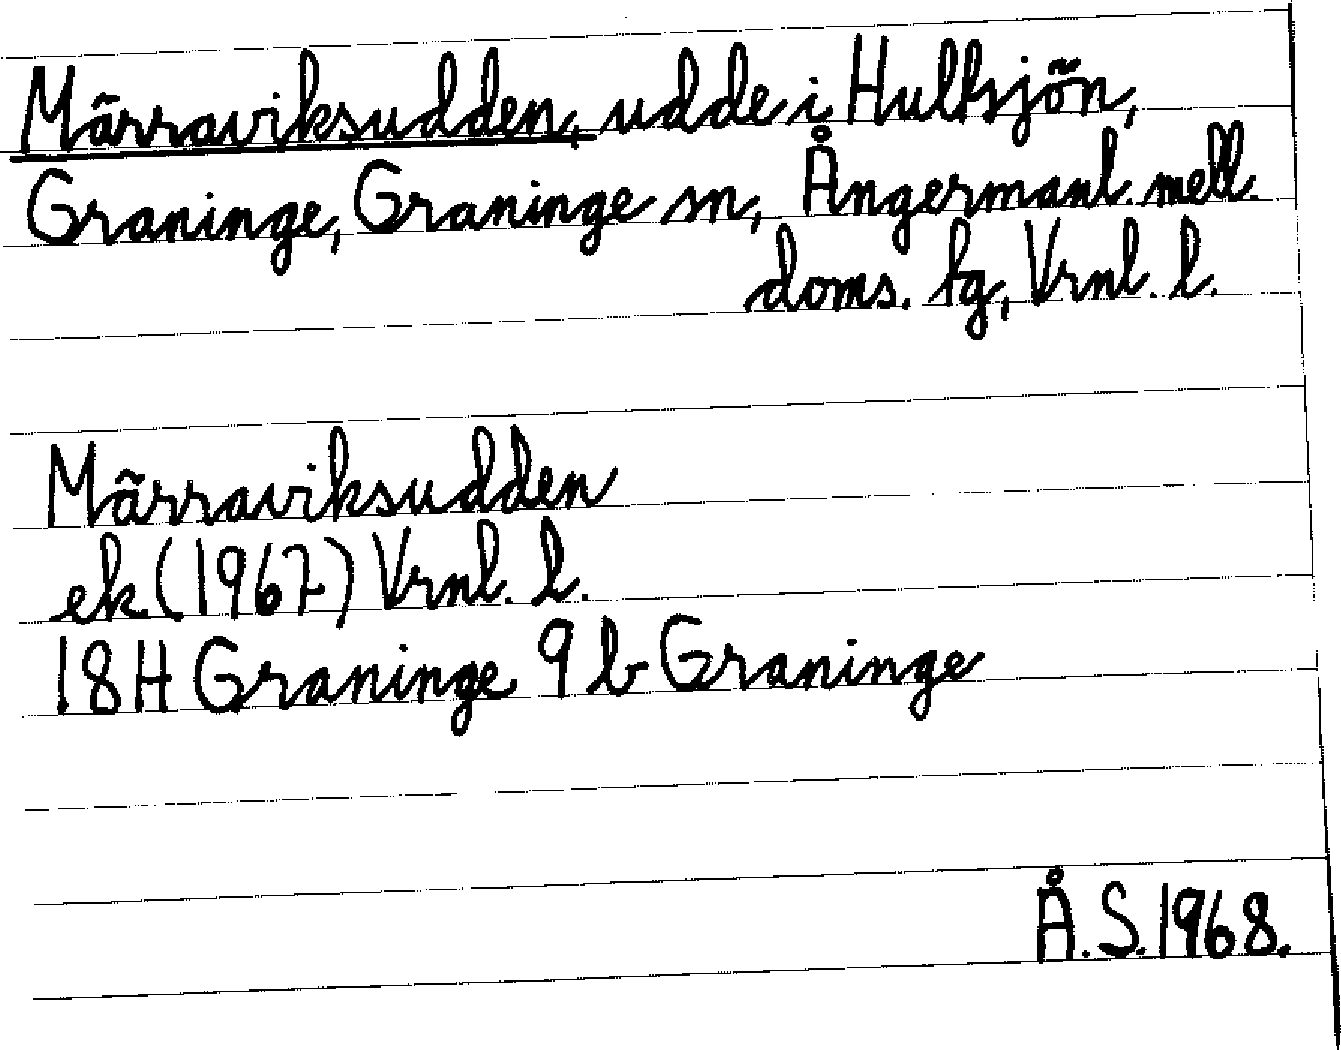 Märraviksudden, udde i Hulksjön,
Graninge, Graninge sn, Ångermanl. mell.
doms. fg, Vrnl. l.
Märraviksudden
ek (1967) Vrnl. l.
18H Graninge 9 b Graninge
Å.S. 1968.